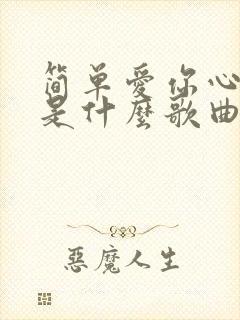 简单爱你心
是什麼歌曲
惡魔人生